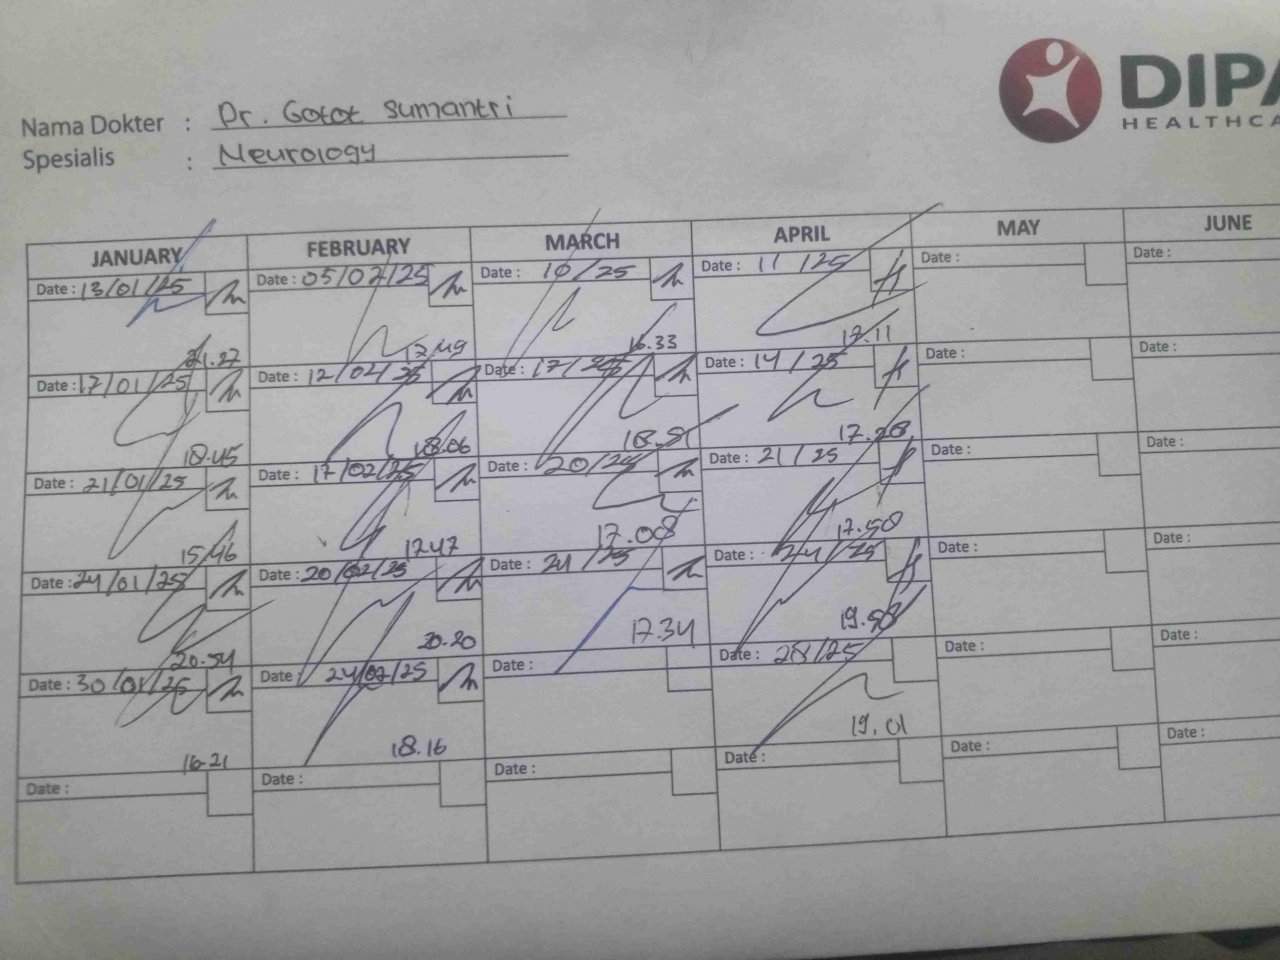 DIPA
HEALTHCA
Nama Dokter : Dr. Gotot Sumantri
Spesialis : Neurology
JANUARY FEBRUARY MARCH APRIL MAY JUNE
Date : 13/01/25 Date : 05/02/25 Date : 10/25 Date : 11/25 Date : Date :
21.27 17.49 16.33 17.11
Date : 17/01/25 Date : 12/02/25 Date : 17/25 Date : 14/25 Date : Date :
18.45 18.06 18.51 17.28
Date : 21/01/25 Date : 17/02/25 Date : 20/25 Date : 21/25 Date : Date :
15.46 17.47 17.08 17.58
Date : 24/01/25 Date : 20/02/25 Date : 24/25 Date : 24/25 Date : Date :
20.54 20.20 17.34 19.58
Date : 30/01/25 Date : 24/02/25 Date : Date : 28/25 Date : Date :
16.21 18.16 19.01
Date : Date : Date : Date : Date : Date :